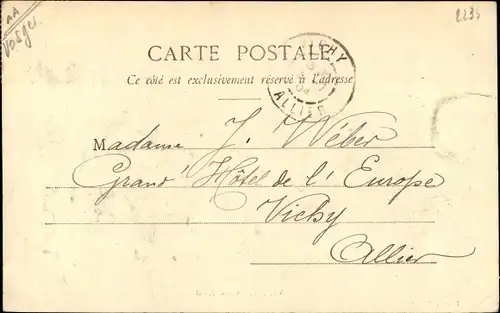 AA
Vosges
2235
CARTE POSTALE
Ce côté est exclusivement réservé à l'adresse
VICHY
04
ALLIER
Madame J. Wéber
Grand Hôtel de l'Europe
Vichy
Allier